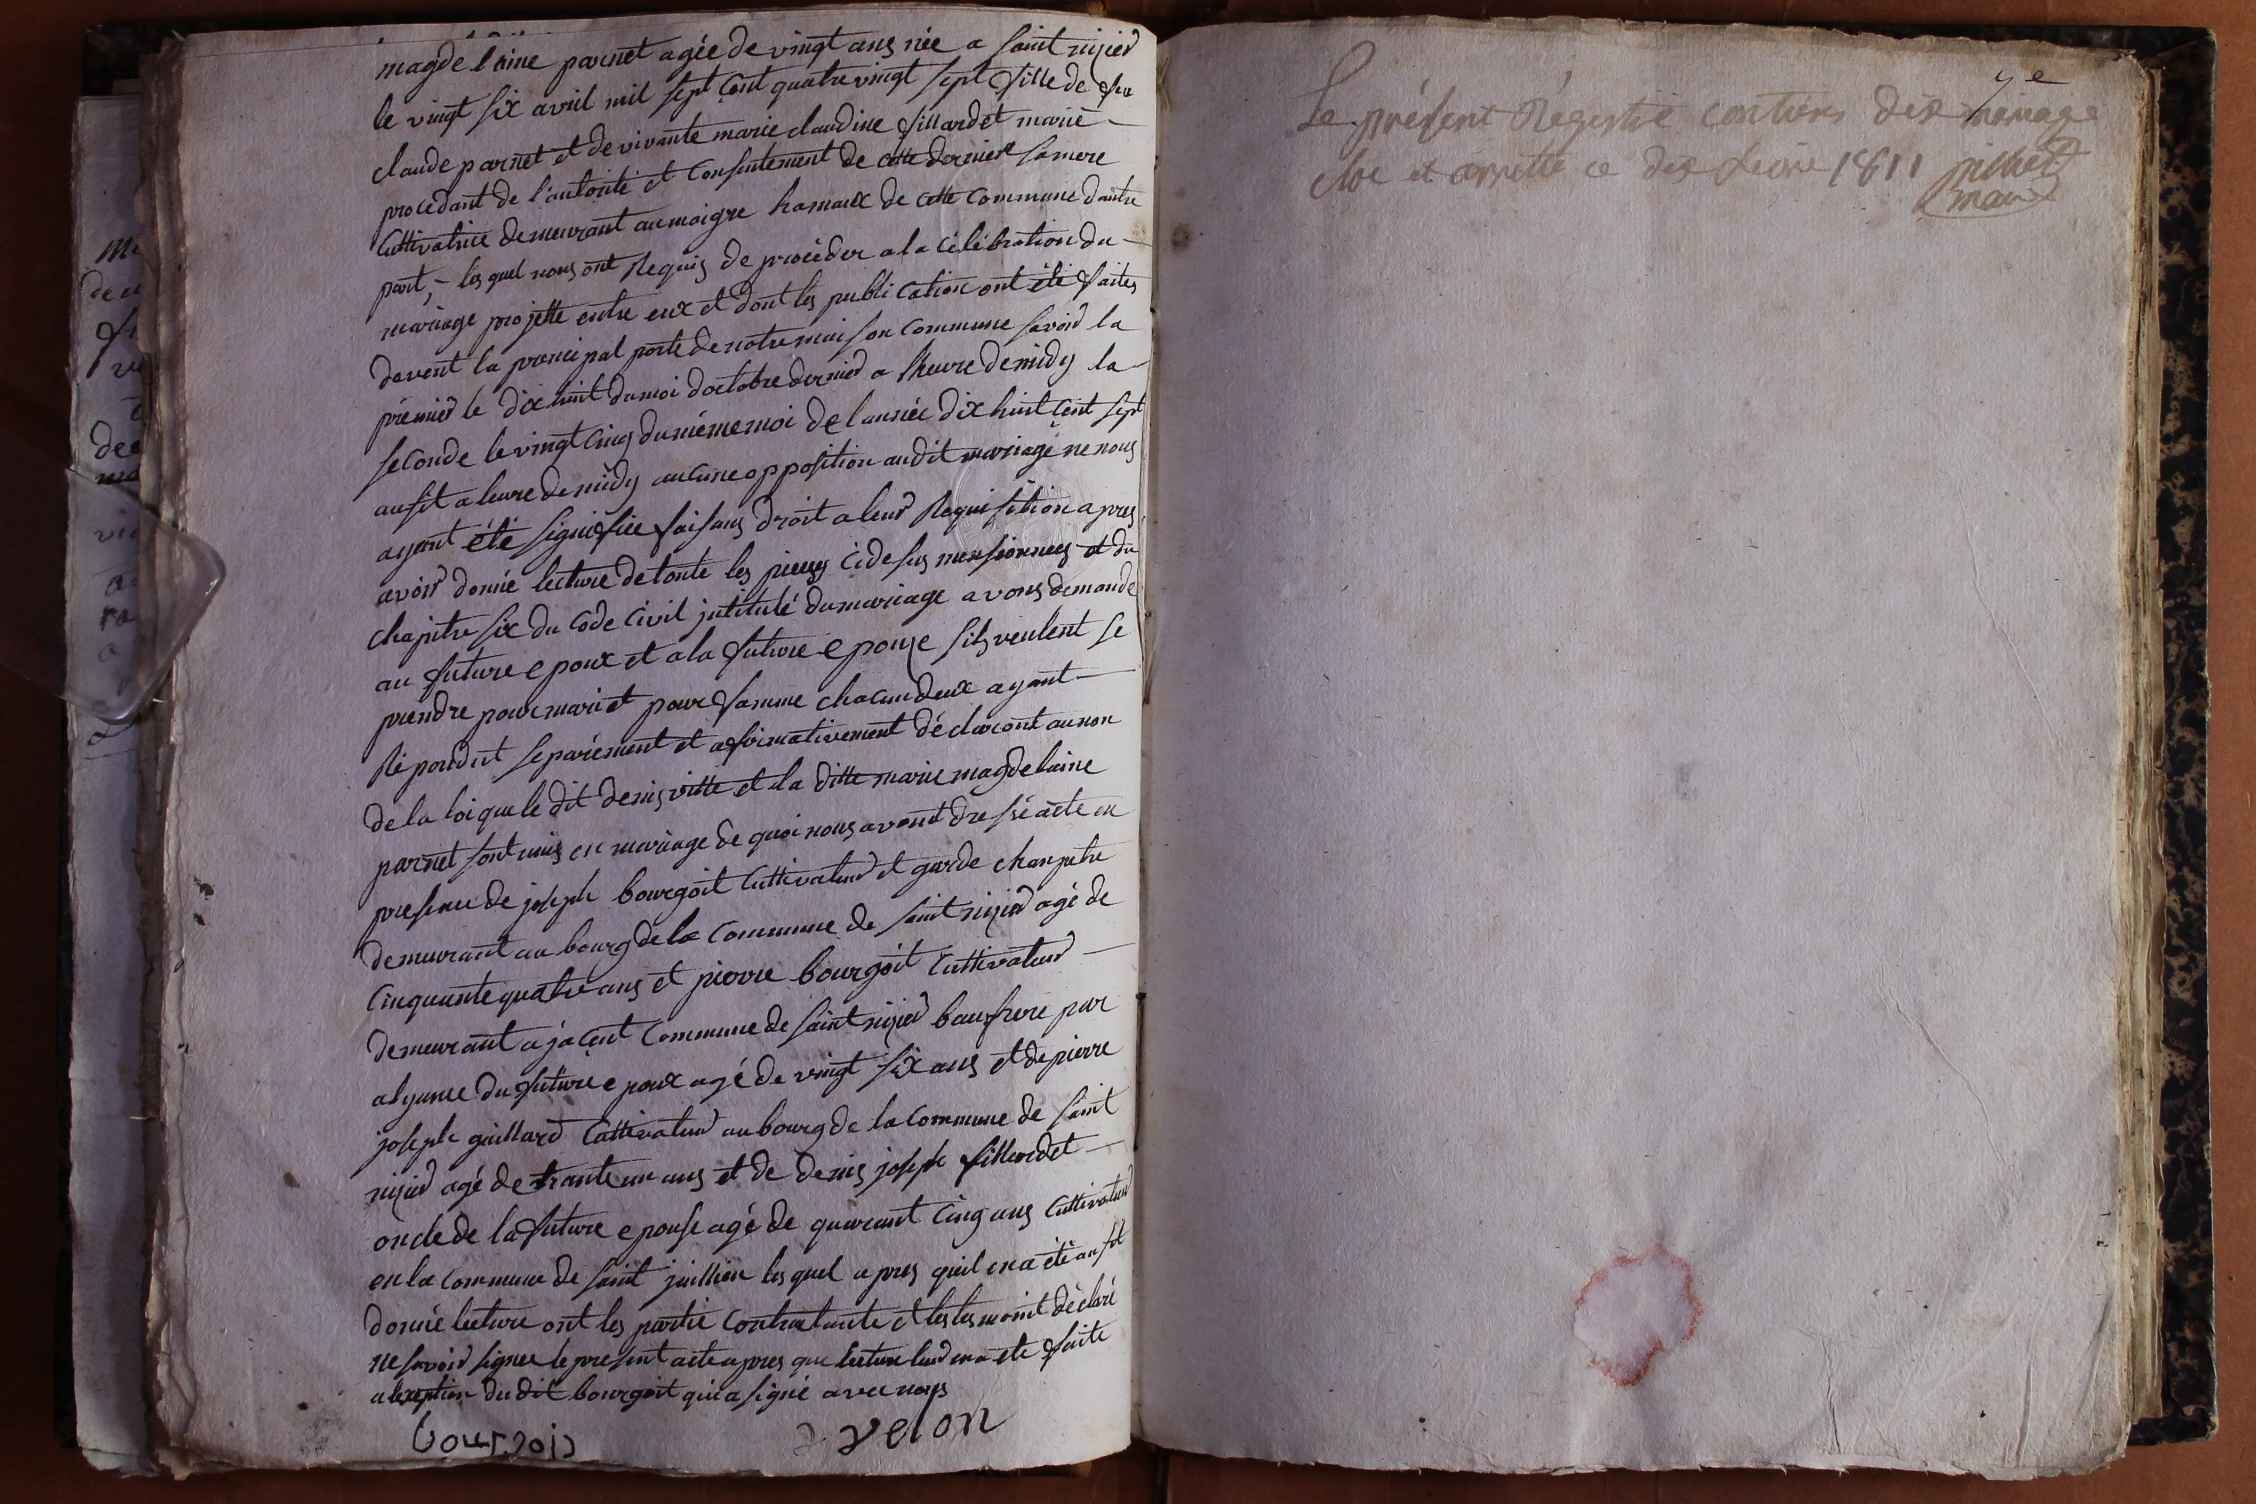 magdelaine parnet agée de vingt ans née a saint nizier
le vingt six avril mil sept cent quatre vingt sept fille de feu
claude parnet et de vivante marie claudine fillardet marié
procedant de l'autorité et consentement de cette derniere sa mere
cultivatrice demeurant au maigre hamaux de cette commune d'autre
part, – les quel nous ont Requis de procéder a la célébration du
mariage projetté entre eux et dont les publication ont été faites
devent la principal porte de notre maison commune savoir la
prémier le dix huit du moi doctobre dernier a lheure de midy la
seconde le vingt cinq du méme moi de l'année dix huit cent sept
ausit a leure de midy aucune opposition audit mariage ne nous
ayant été signifiée faisans droit a leur Requisition apres
avoir donné lecture de toute les pieces ci desus mensionnees et du
chapitre six du code civil jntitulé du mariage avons demandé
au future epoux et a la future epouze sils veulent se
prendre pour mari et pour famme chacun deux ayant
Répondut separément et afirmativement déclaront au non
de la loi que le dit denis vitte et la ditte marie magdelaine
parnet sont unis en mariage de quoi nous avont dressé acte en
presence de joseph bourgoit cultivateur et garde chanpetre
demeurant au bourg de la commune de saint nizier agé de
cinquante quatre ans et pierre bourgoit cultivateur
demeurant a jacent commune de saint nizier baufrere par
alyance du future epoux agé de vingt six ans et de pierre
joseph gaillard cultivateur au bourg de la commune de saint
nizier agé de trante un ans et de denis joseph fillardet
oncle de la future epouse agé de quarant cinq ans cultivateur
en la commune de saint juillien les quel apres quil en a été ausit
donné lecture ont les partie contratante et les tesmoint déclaré
ne savoir signer le present acte apres que lecture leur en a ete faite
a lexeption du dit bourgoit qui a signé avec nous
bourgois velon
Le présent Régistre contiens dix mariage
clos et arretté ce dix 1811
maire